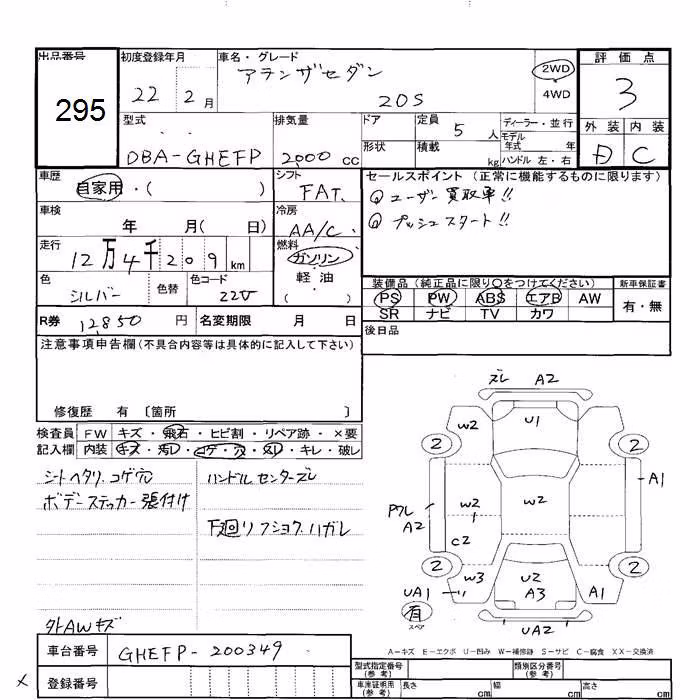 出品番号
295
初度登録年月
22 2月
車名・グレード
アテンザセダン
20S
2WD
4WD
評価点
3
外装 内装
D C
型式
DBA-GHEFP
排気量
2000 cc
ドア
形状
定員 5 人
積載 kg
ディーラー・並行
モデル年式 年
ハンドル 左・右
車歴
自家用・( )
シフト
FAT
セールスポイント (正常に機能するものに限ります)
ユーザー買取車!!
プッシュスタート!!
車検
年 月( 日)
冷房
AA/C
走行
12万4千209km
燃料
ガソリン
軽油
( )
色
シルバー
色替
色コード
22V
装備品(純正品に限り○をつけてください)
新車保証書
PS PW ABS エアB AW
有・無
SR ナビ TV カワ
R券 12850 円
名変期限 月 日
後日品
注意事項申告欄(不具合内容等は具体的に記入して下さい)
修復歴 有〔箇所 〕
検査員 FW キズ・飛石・ヒビ割・リペア跡・×要
記入欄 内装 キズ・汚レ・コゲ・穴・スレ・キレ・破レ
シートヘタリ.コゲ穴
ハンドルセンターズレ
ボデーステッカー張付け
下廻りフショク.ハガレ
外AWキズ
ズレ A2
W2
U1
2
2
A1
W2
W2
PワレA2
C2
2
2
W3
U2
A3
A1
UA1
有
スペア
UA2
A-キズ E-エクボ U-凹み W-補修跡 S-サビ C-腐食 XX-交換済
車台番号
GHEFP-200349
登録番号
×
型式指定番号
(参考)
類別区分番号
(参考)
車庫証明用
(参考)
長さ cm
幅 cm
高さ cm